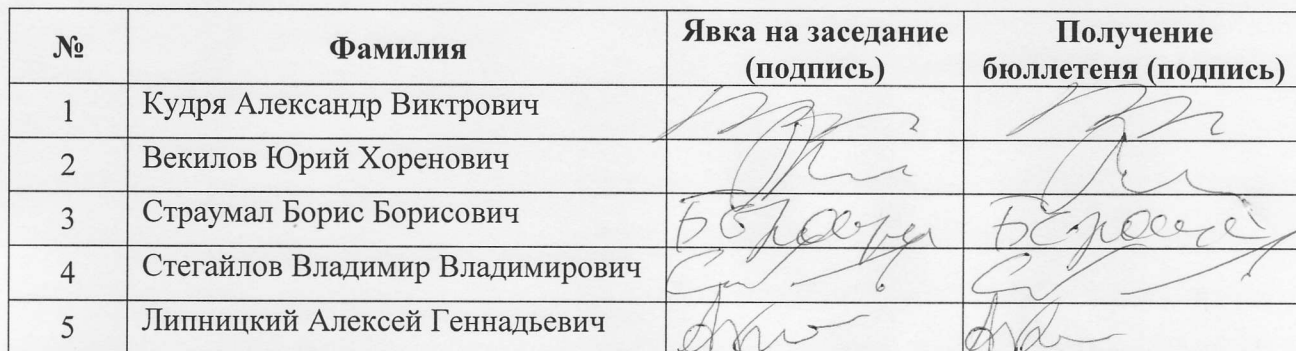 № Фамилия Явка на заседание (подпись) Получение бюллетеня (подпись)
1 Кудря Александр Виктрович
2 Векилов Юрий Хоренович
3 Страумал Борис Борисович
4 Стегайлов Владимир Владимирович
5 Липницкий Алексей Геннадьевич